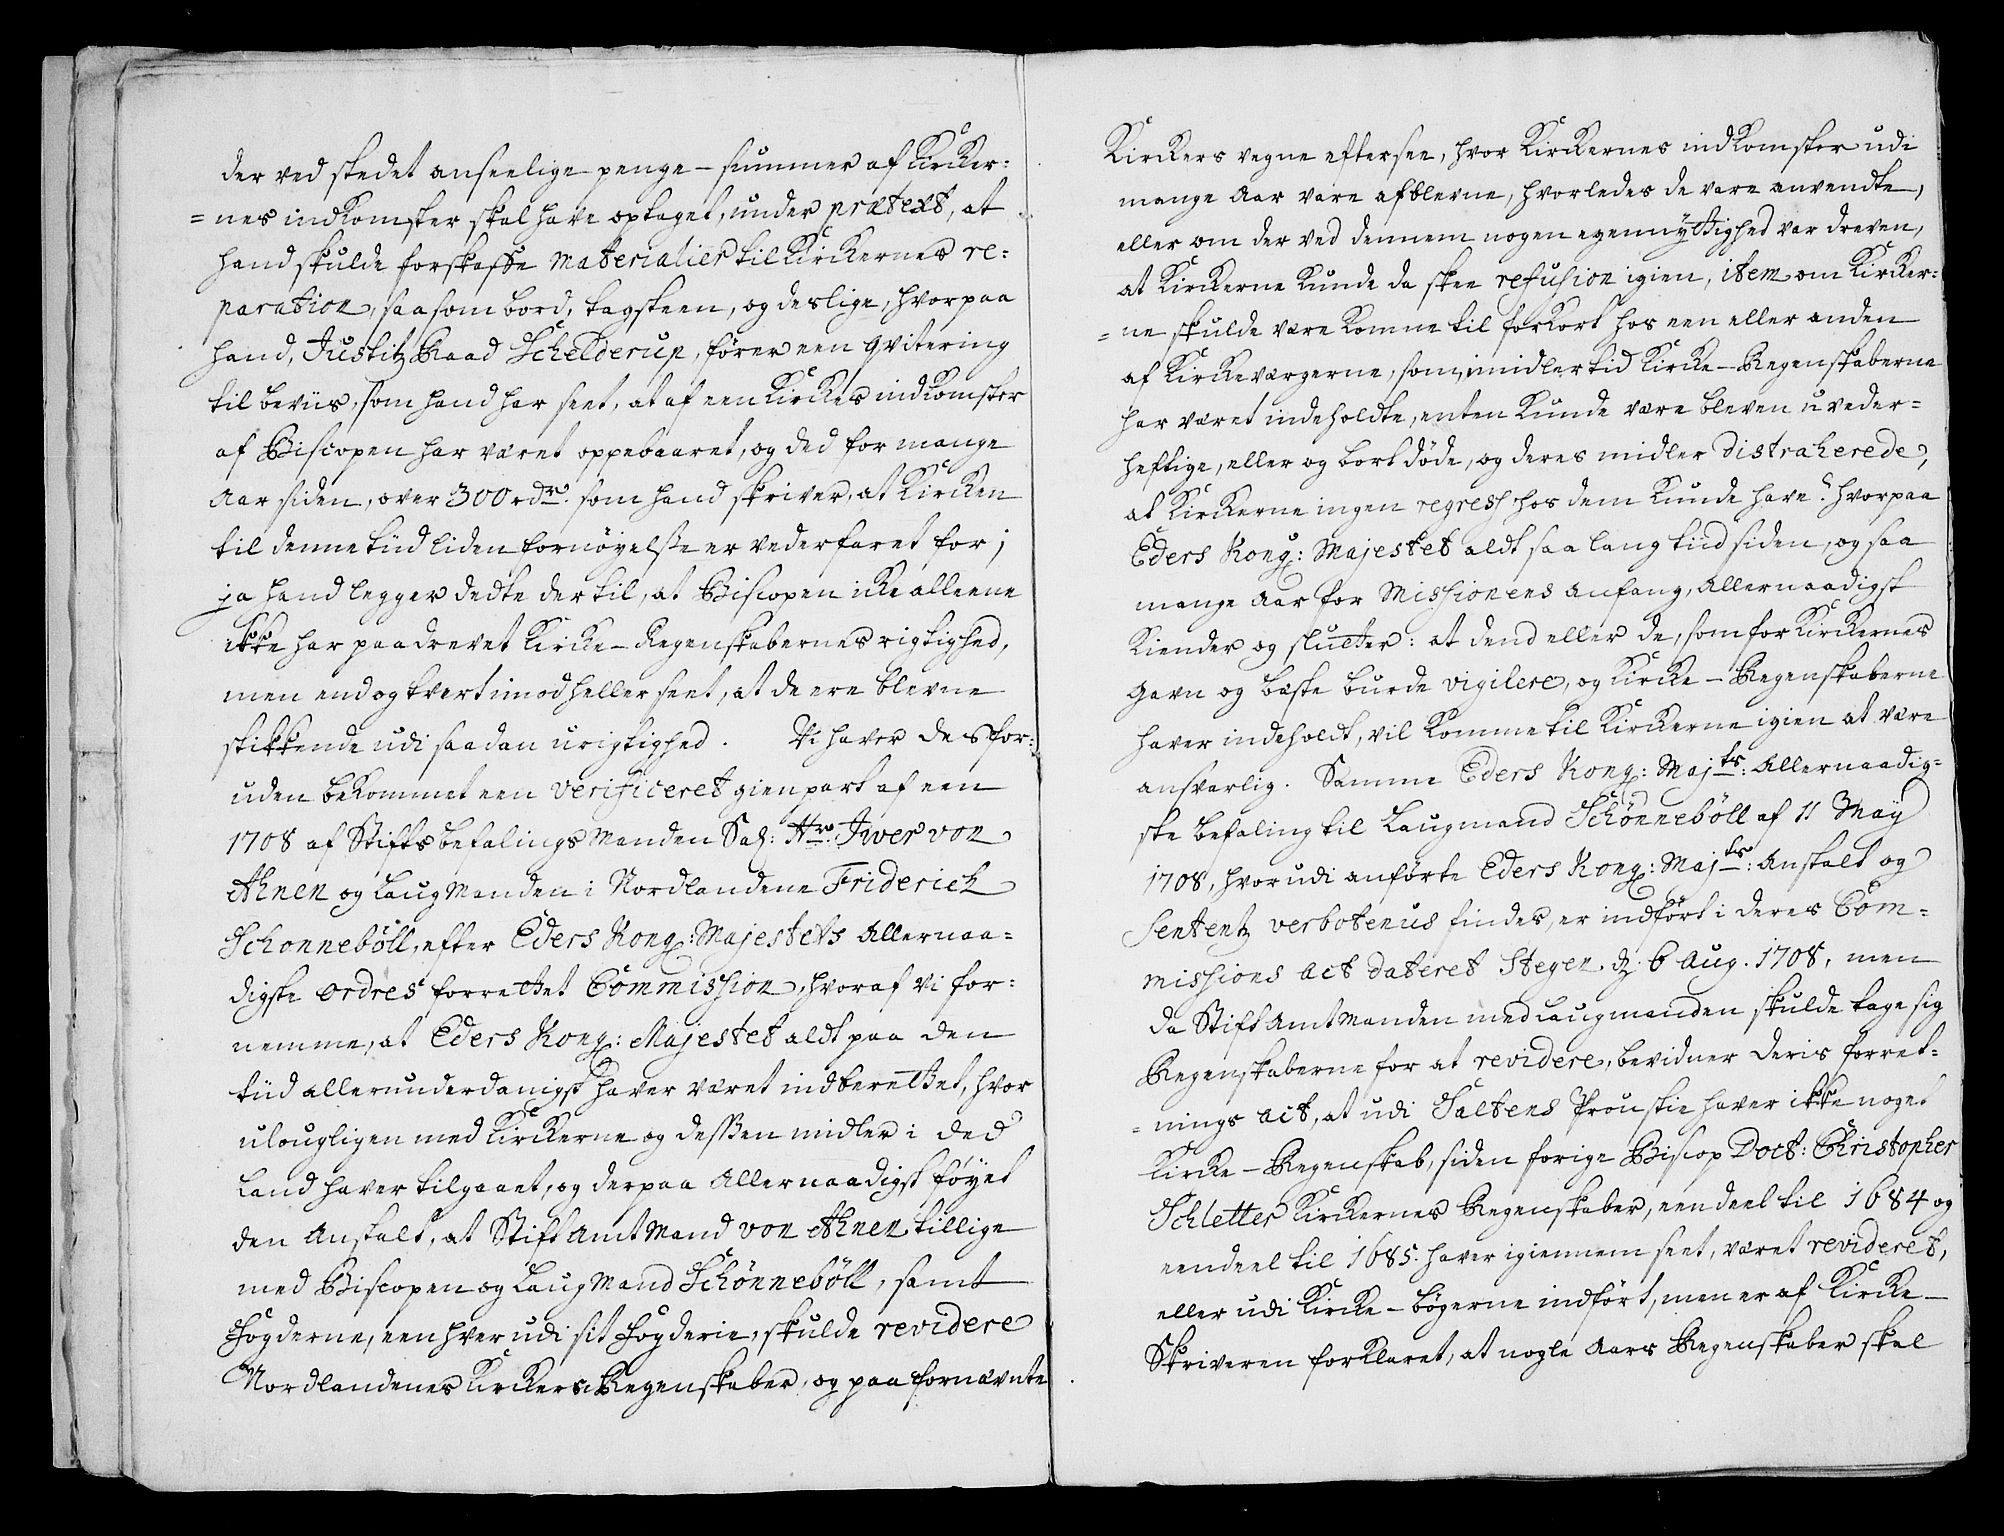 der ved stedet anseelige penge-summer af Kircker-
=nes indkomster skal have optaget, under prætext, at
hand skulde forskaffe Materialier til Kirckernes re-
paration, saasom bord, tagsteen, og deslige, hvorpaa
hand, Justitz Raad Schelderup, fører een qvitering
til beviis, som hand har seet, at af een Kirckes indkomster
af Biscopen har været oppebaaret, og ded for mange
Aar siden, over 300 rdr. som hand skriver, at Kircken
til denne tiid liden fornøyelsse er vederfaret for;
ja hand legger dette der til, at Biscopen icke alleene
ikke har paadrevet Kircke-Regenskabernes rigtighed,
men endog tvert imod heller seet, at de ere blevne
stikkende udi saadan urigtighed. Vi haver desfor-
uden bekommet een verificeret gienpart af een
1708 af Stiftsbefalings Manden Sal: Hr. Iwer von
Ahnen og Laug Manden i Nordlandene Friderich
Schonnebøll, efter Eders Kong: Majestets Allernaa-
digste ordres forrettet Commission, hvoraf vi for-
nemme, at Eders Kong: Majestet aldt paa den
tiid allerunderdanigst haver været indberettet, hvor
ulougligen med Kirckerne og dessen midler i ded
Land haver tilgaaet, og derpaa Allernaadigst føyet
den Anstalt, at Stift Amt Mand von Ahnen tillige
med Biscopen og Laug Mand Schönnebøll, samt
Fogderne, een hver udi sit Fogderie, skulde revidere
Nordlandenes Kirckers Regenskaber, og paa fornævnte
Kirckers vegne eftersee, hvor Kirckernes indkomster udi
mange Aar vare afblevne, hvorledes de vare anvendte,
eller om der ved dennem nogen egennyttighed var dreven,
at Kirckerne kunde da skee refusion igien, item om Kircker-
=ne skulde være komne til forkort hos een eller anden
af Kirckeværgerne, som imidlertid Kircke-Regenskaberne
har været indeholdte, enten kunde være bleven uveder-
heftige, eller og bortdøde, og deres midler distraherede,
at Kirckerne ingen regress hos dem kunde have? hvorpaa
Eders Kong: Majestet aldt saa lang tiid siden, og saa
mange Aar for Missionens Anfang, Allernaadigst
kiender og slutter: at dend eller de, som for Kirckernes
Gavn og beste burde vigilere, og Kircke-Regenskaberne
haver indeholdt, vil komme til Kirckerne igien at være
ansvarlig. Samme Eders Kong: Majts: Allernaadig-
ste befaling til Laugmand Schönnebøll af 11 May
1708, hvorudi anførte Eders Kong: Majts: Anstalt og
Sententz verbotenus findes, er indført i deres Com-
missions act dateret Stegen d. 6 Aug. 1708, men
da Stift Amt Manden med Laugmanden skulde tage sig
Regenskaberne for at revidere, bevidner deris forret-
=nings act, at udi Saltens Proustie haver ikke noget
Kircke-Regenskab, siden forige Biscop Doct: Christopher
Schletter Kirckernes Regenskaber, een deel til 1684 og
een deel til 1685. haver igiennem seet, været revideret,
eller udi Kircke-bøgerne indført, men er af Kircke-
Skriveren forklaret, at nogle Aars Regenskaber skal